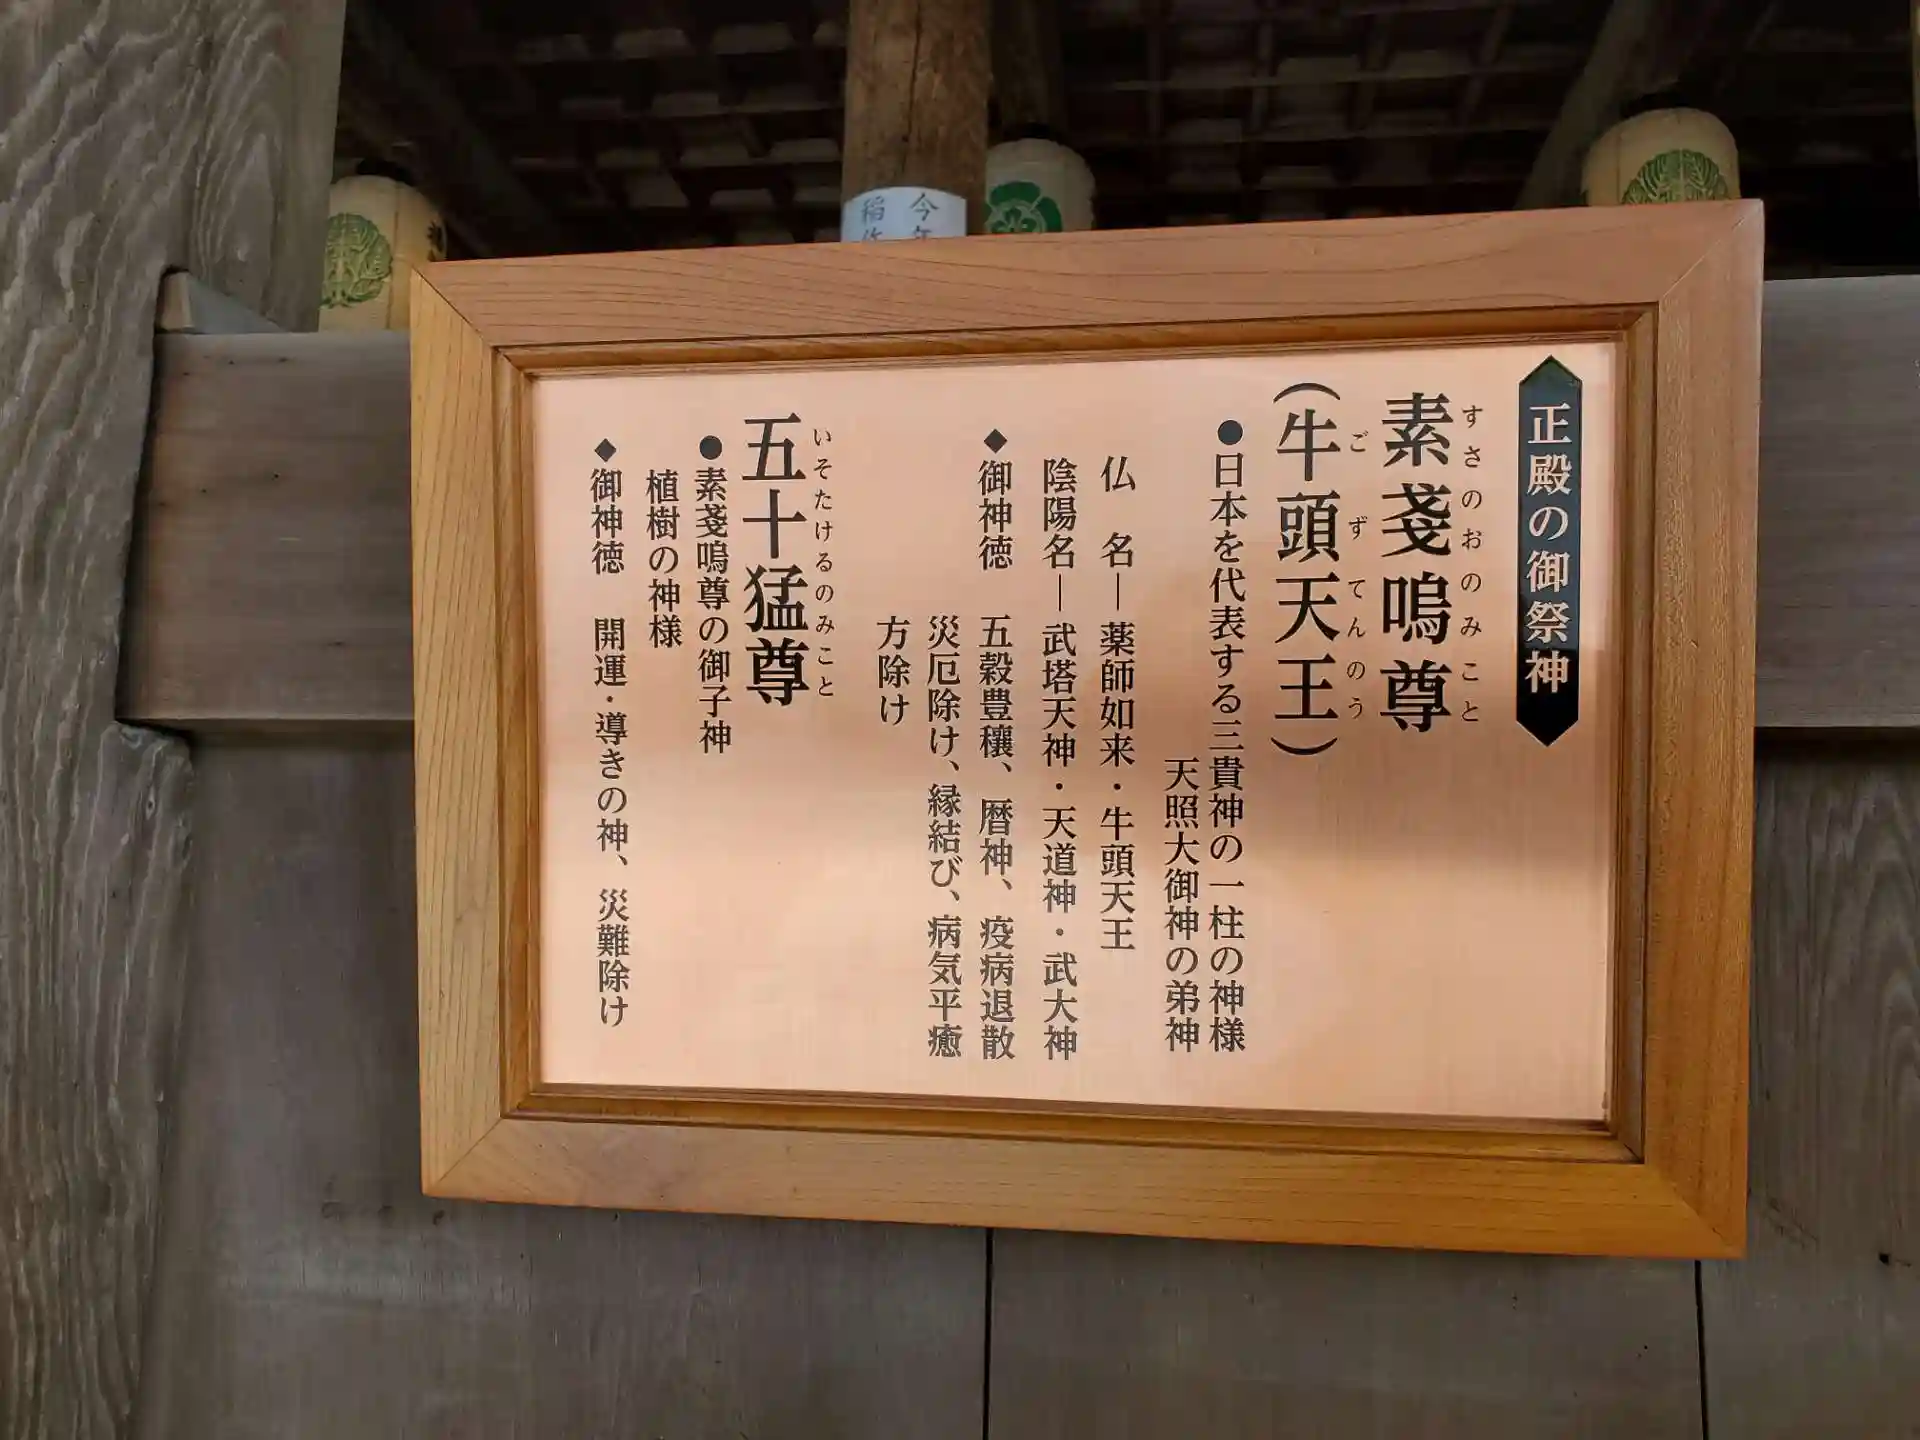 正殿の御祭神
素戔嗚尊
すさのおのみこと
（牛頭天王）
ごずてんのう
●日本を代表する三貴神の一柱の神様
天照大御神の弟神
仏　名―薬師如来・牛頭天王
陰陽名―武塔天神・天道神・武大神
◆御神徳　五穀豊穣、暦神、疫病退散
災厄除け、縁結び、病気平癒
方除け
五十猛尊
いそたけるのみこと
●素戔嗚尊の御子神
植樹の神様
◆御神徳　開運・導きの神、災難除け
今年
稲作